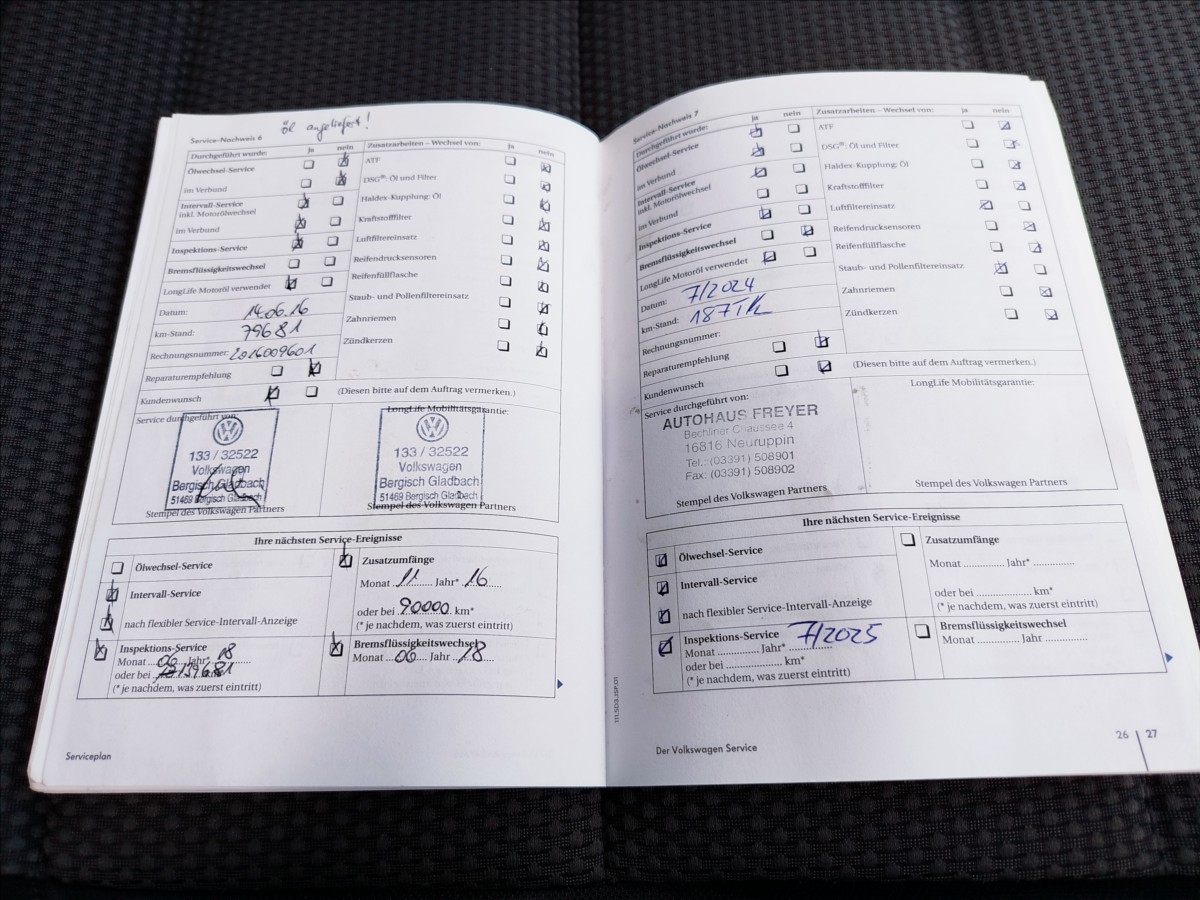 Öl angeliefert!
Service-Nachweis 6
Durchgeführt wurde: ja nein
Ölwechsel-Service
im Verbund
Intervall-Service
inkl. Motorölwechsel
im Verbund
Inspektions-Service
Bremsflüssigkeitswechsel
LongLife Motoröl verwendet
Datum: 14.06.16
km-Stand: 79681
Rechnungsnummer: 2016009601
Reparaturempfehlung
Kundenwunsch
(Diesen bitte auf dem Auftrag vermerken.)
Zusatzarbeiten – Wechsel von: ja nein
ATF
DSG®: Öl und Filter
Haldex-Kupplung: Öl
Kraftstofffilter
Luftfiltereinsatz
Reifendrucksensoren
Reifenfüllflasche
Staub- und Pollenfiltereinsatz
Zahnriemen
Zündkerzen
Service durchgeführt von:
133 / 32522
Volkswagen
Bergisch Gladbach
51469 Bergisch Gladbach
Stempel des Volkswagen Partners
LongLife Mobilitätsgarantie:
133 / 32522
Volkswagen
Bergisch Gladbach
51469 Bergisch Gladbach
Stempel des Volkswagen Partners
Ihre nächsten Service-Ereignisse
Ölwechsel-Service
Intervall-Service
nach flexibler Service-Intervall-Anzeige
Zusatzumfänge
Monat 11 Jahr* 16
oder bei 90000 km*
(* je nachdem, was zuerst eintritt)
Inspektions-Service
Monat 06 Jahr* 18
oder bei 139681
(* je nachdem, was zuerst eintritt)
Bremsflüssigkeitswechsel
Monat 06 Jahr 18
Serviceplan
Service-Nachweis 7
Durchgeführt wurde: ja nein
Ölwechsel-Service
im Verbund
Intervall-Service
inkl. Motorölwechsel
im Verbund
Inspektions-Service
Bremsflüssigkeitswechsel
LongLife Motoröl verwendet
Datum: 7/2024
km-Stand: 187TK
Rechnungsnummer:
Reparaturempfehlung
Kundenwunsch
(Diesen bitte auf dem Auftrag vermerken.)
Zusatzarbeiten – Wechsel von: ja nein
ATF
DSG®: Öl und Filter
Haldex-Kupplung: Öl
Kraftstofffilter
Luftfiltereinsatz
Reifendrucksensoren
Reifenfüllflasche
Staub- und Pollenfiltereinsatz
Zahnriemen
Zündkerzen
Service durchgeführt von:
AUTOHAUS FREYER
Bechliner Chaussee 4
16816 Neuruppin
Tel.: (03391) 508901
Fax: (03391) 508902
Stempel des Volkswagen Partners
LongLife Mobilitätsgarantie:
Stempel des Volkswagen Partners
Ihre nächsten Service-Ereignisse
Ölwechsel-Service
Intervall-Service
nach flexibler Service-Intervall-Anzeige
Zusatzumfänge
Monat ............. Jahr* .............
oder bei ..................... km*
(* je nachdem, was zuerst eintritt)
Inspektions-Service 7/2025
Monat ............. Jahr* .............
oder bei ..................... km*
(* je nachdem, was zuerst eintritt)
Bremsflüssigkeitswechsel
Monat ............. Jahr .............
Der Volkswagen Service
26 27